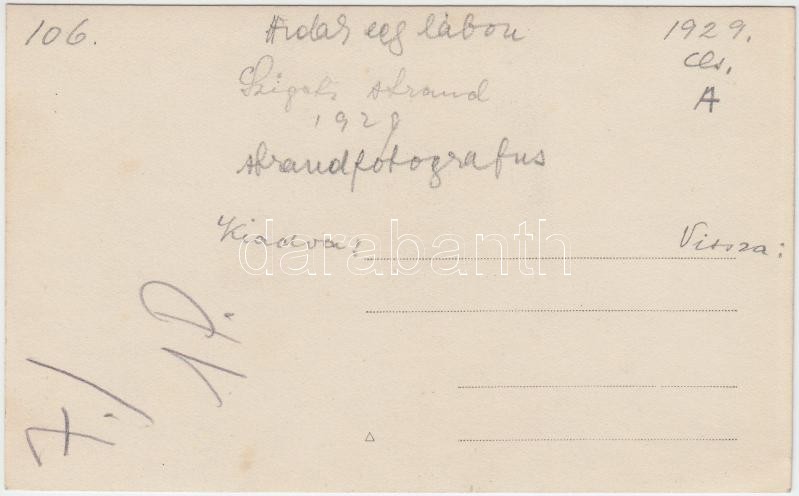 106.
Ardai egy lábon
1929.
cls.
A
Szigeti strand
1929
strandfotografus
Kiadva:
Vissza:
darabanth
1P.
7./